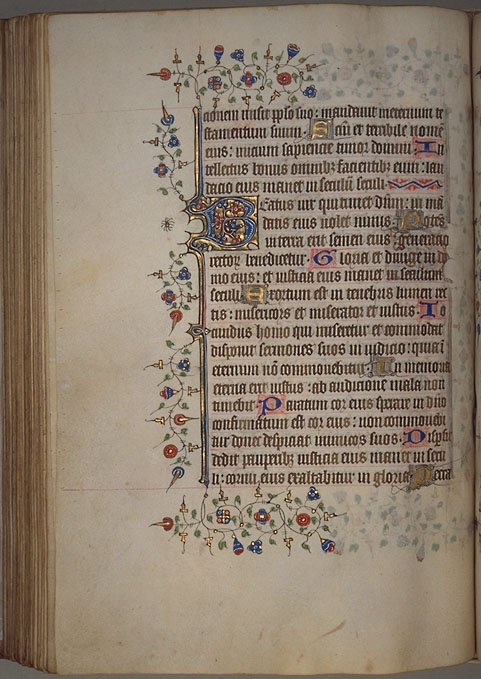 ionem misit pp̄lo suo: mandauit ineternum te
stamentum suum. Scm̄ et terribile nomen
eius: inicium sapiencie timor domini. In
tellectus bonus omnibꝫ facientibꝫ eum: lau
dacio eius manet in seculum seculi.
Beatus uir qui timet dn̄m: in mā
datis eius uolet nimis. Potēs
in terra erit semen eius: generacio
rectoꝝ benedicetur. Gloria et diuicie in do
mo eius: et iusticia eius manet in seculum
seculi. Exortum est in tenebris lumen rec
tis: misericors et miserator et iustus. Io
cundus homo qui miseretur et commodat
disponit sermones suos in iudicio: quia in
eternum nō commouebitur. In memoria
eterna erit iustus: ab audicione mala non
timebit. Paratum cor eius sperare in dn̄o
confirmatum est cor eius: non commouebi
tur donec despiciat inimicos suos. Dispsit
dedit pauperibꝫ iusticia eius manet in secu
li: cornu eius exaltabitur in gloria. Pecca